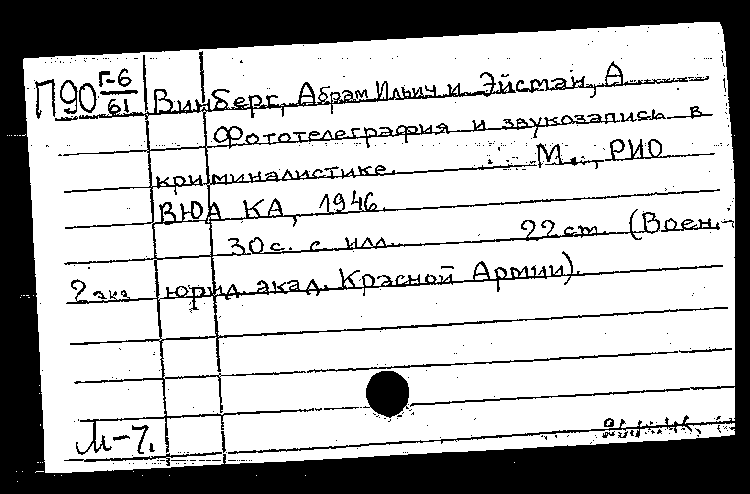 П90 Г-6/61 Винберг, Абрам Ильич и Эйсман, А
Фототелеграфия и звукозапись в
криминалистике. М., РИО
ВЮА КА, 1946.
30с. с илл. 22см. (Воен.-
2 экз юрид. акад. Красной Армии).
М-7.